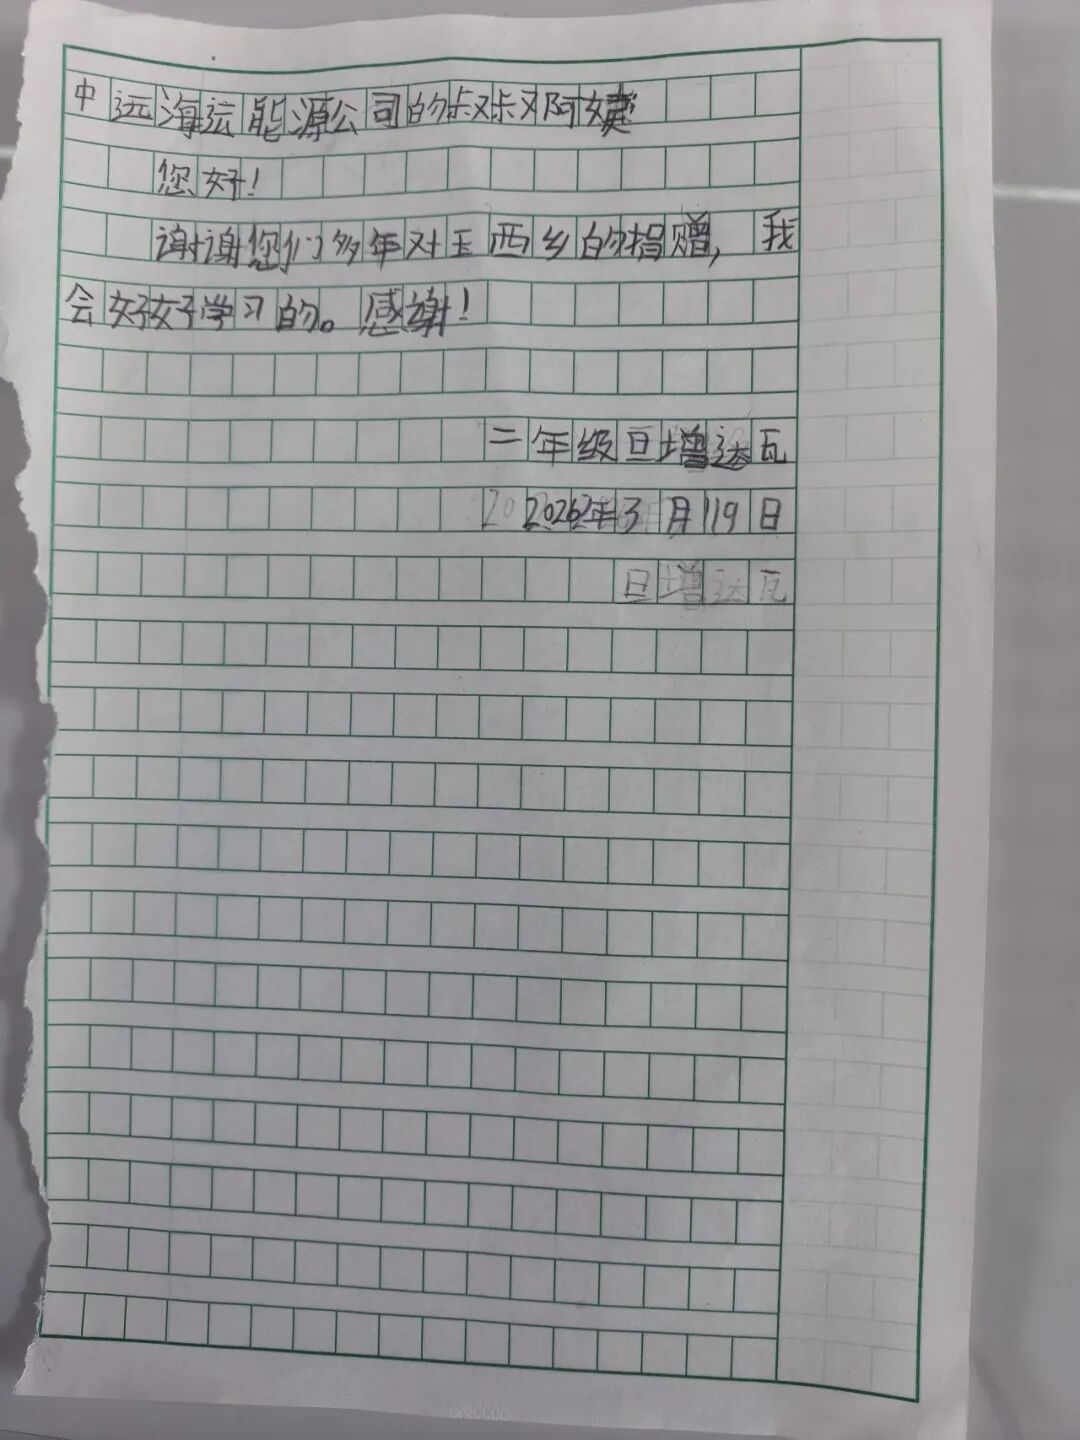 中远海运能源公司的叔叔阿姨
您好！
谢谢您们多年对玉西乡的捐赠，我
会好好学习的。感谢！
二年级旦增达瓦
2026年3月19日
旦增达瓦